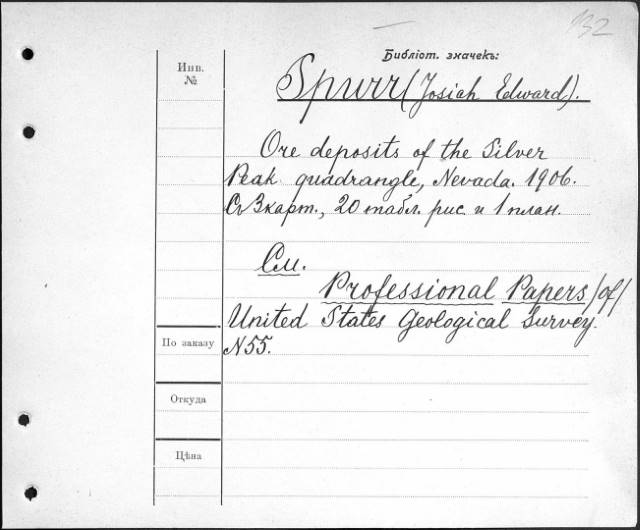 132
Библіот. значекъ:
Инв.
№
Spurr (Josiah Edward).
Ore deposits of the Silver
Peak quadrangle, Nevada. 1906.
Съ 3 карт., 20 табл. рис. и 1 план.
См.
Professional Papers /of/
United States Geological Survey.
По заказу
N 55.
Откуда
Цѣна